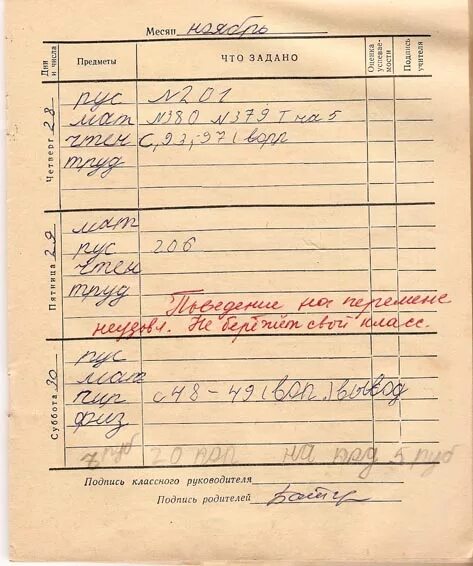 Месяц ноябрь
Дни и числа Предметы ЧТО ЗАДАНО Оценка успеваемости Подпись учителя
Четверг 28
рус №201
мат №380 №379 Т на 5
чтен с, 93,-97 (вопр
труд
Пятница 29
мат
рус 206
чтен
труд
Поведение на перемене
неудовл. Не бережёт свой класс.
Суббота 30
рус
мат
пир с 48-49 (воп.) вывод
физ
7 руб 20 коп на прд 5 руб
Подпись классного руководителя
Подпись родителей